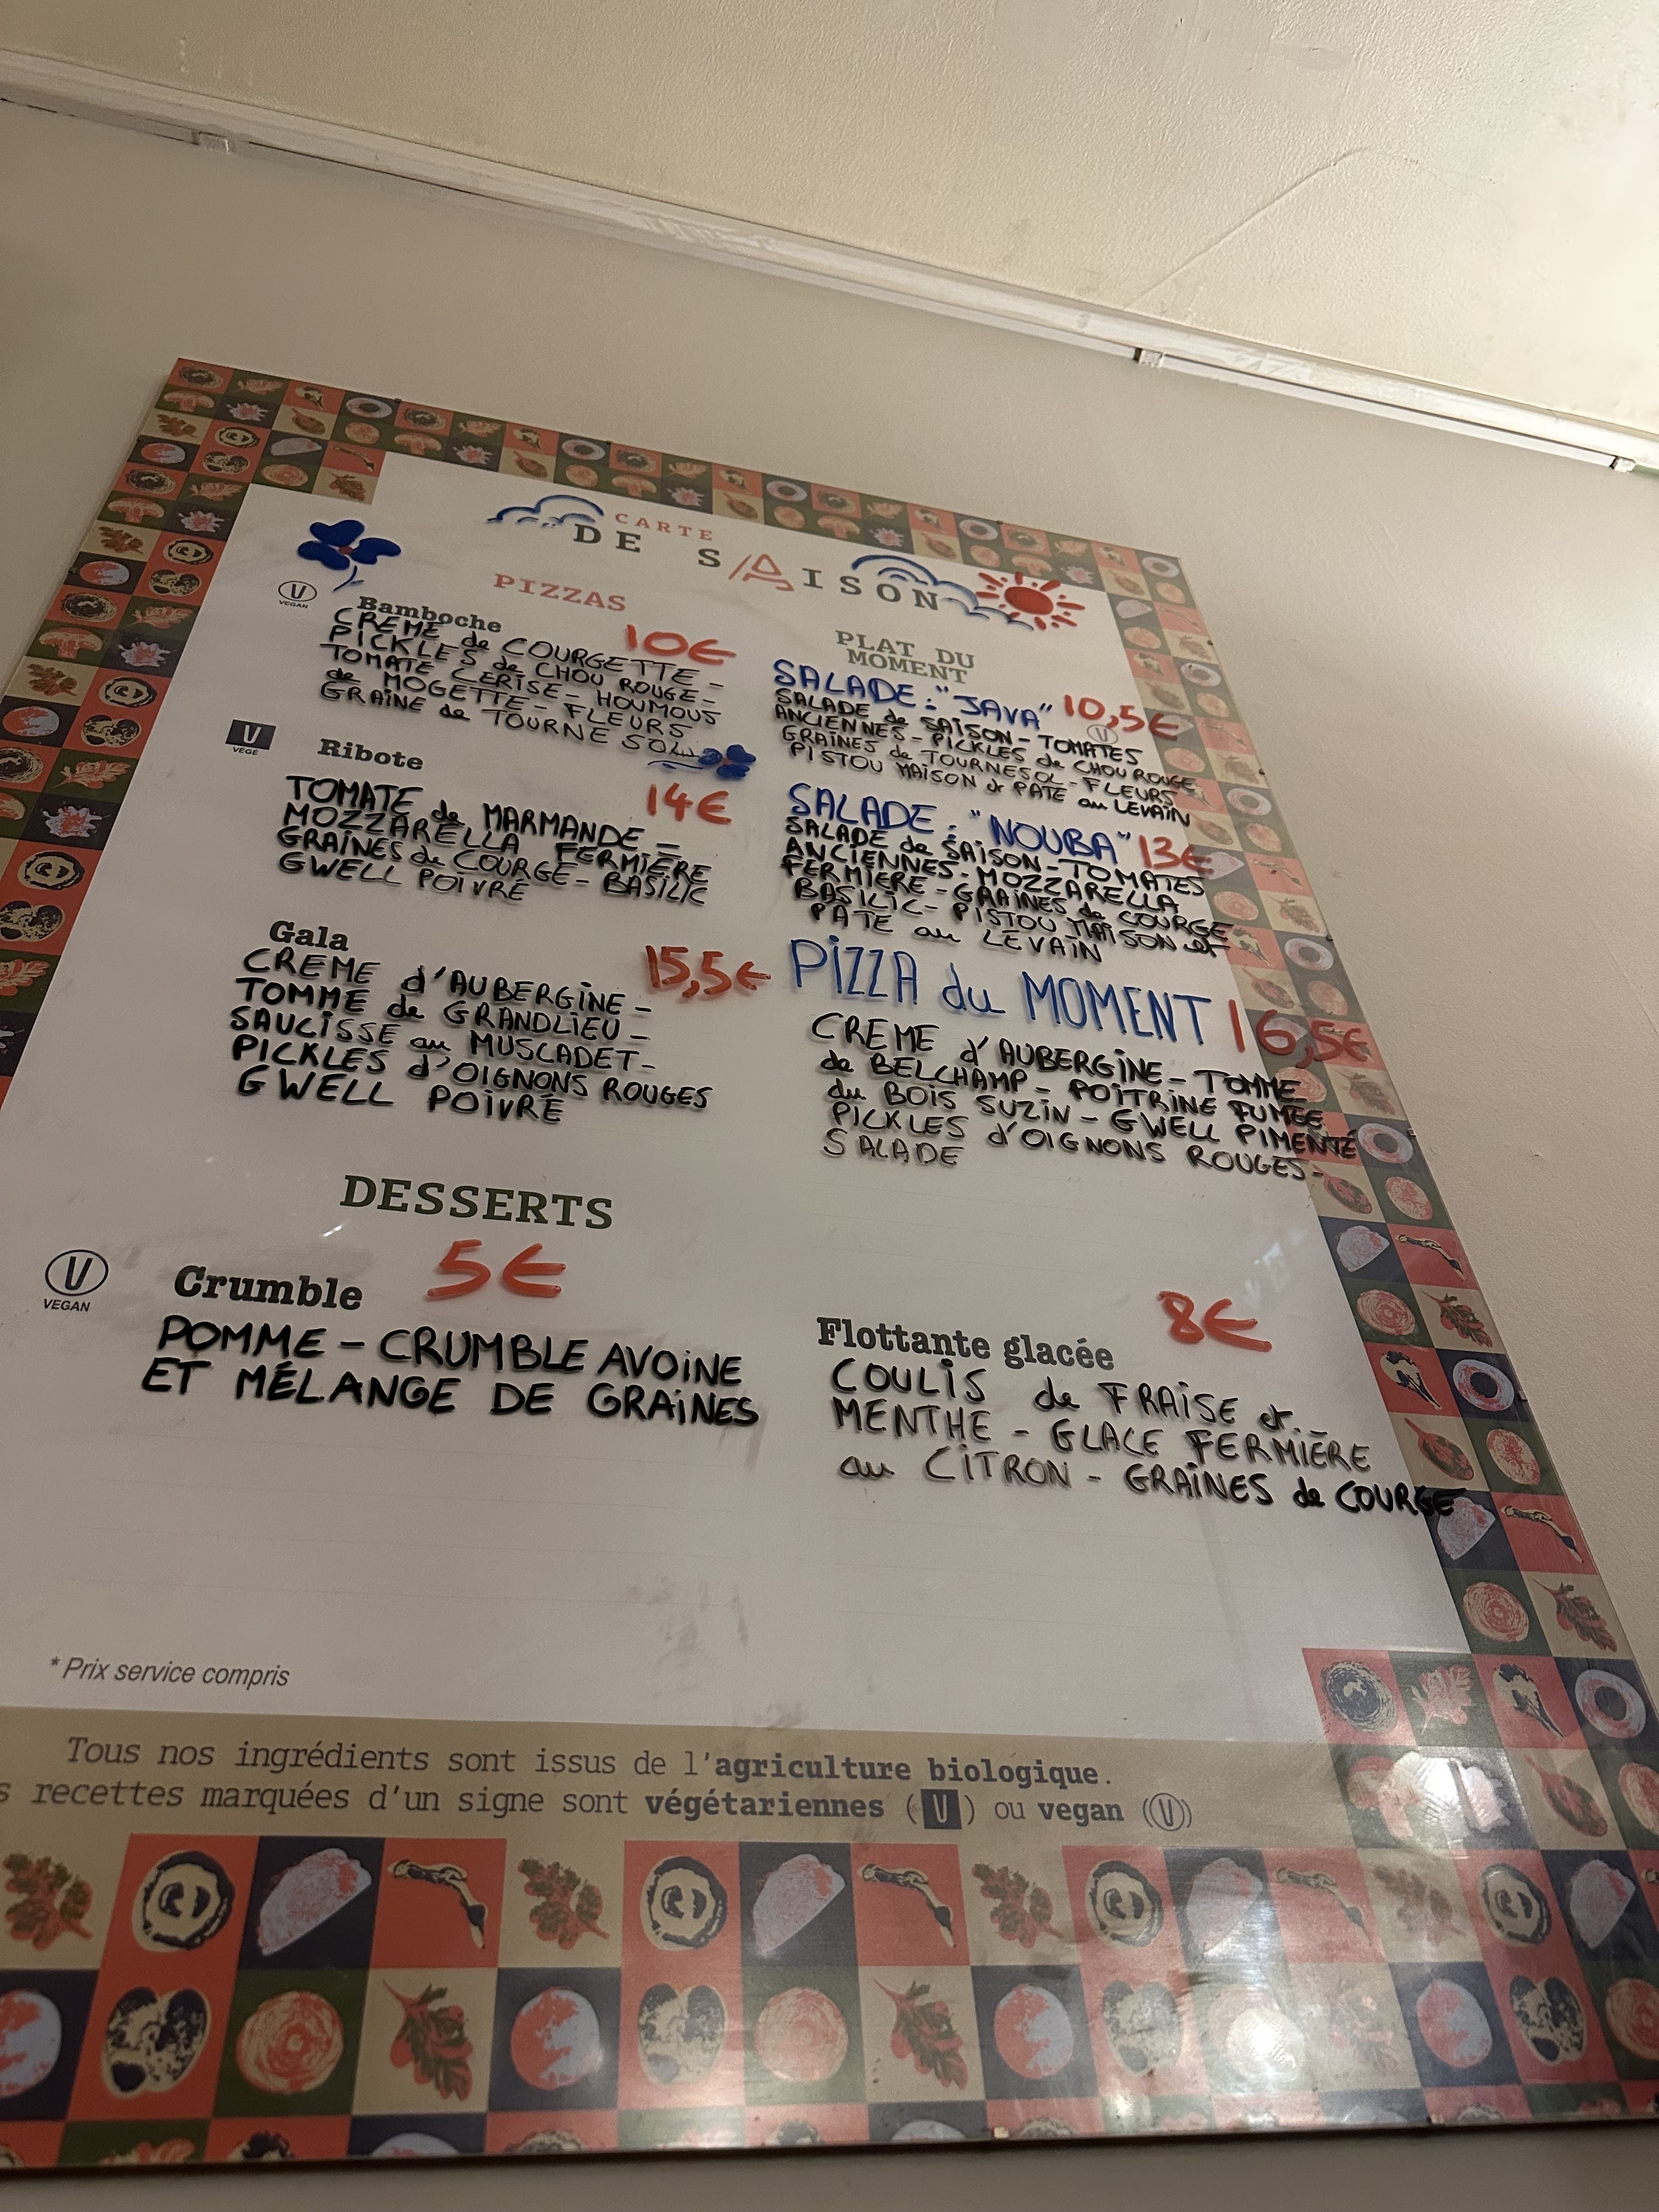 CARTE
DE SAISON
PIZZAS
VEGAN
Bamboche
10€
CREME de COURGETTE -
PICKLES de CHOU ROUGE -
TOMATE CERISE - HOUMOUS
de MOGETTE - FLEURS
GRAINE de TOURNESOL
VÉGÉ
Ribote
14€
TOMATE de MARMANDE -
MOZZARELLA FERMIÈRE
GRAINES de COURGE - BASILIC
GWELL POIVRÉ
Gala
15,5€
CREME d'AUBERGINE -
TOMME de GRANDLIEU -
SAUCISSE au MUSCADET -
PICKLES d'OIGNONS ROUGES
GWELL POIVRÉ
PLAT DU
MOMENT
SALADE : "JAVA" 10,5€
SALADE de SAISON - TOMATES
ANCIENNES - PICKLES de CHOU ROUGE
GRAINES de TOURNESOL - FLEURS
PISTOU MAISON et PATE au LEVAIN
SALADE : "NOUBA" 13€
SALADE de SAISON - TOMATES
ANCIENNES - MOZZARELLA
FERMIÈRE - GRAINES de COURGE
BASILIC - PISTOU MAISON et
PÂTE au LEVAIN
PIZZA du MOMENT 16,5€
CREME d'AUBERGINE - TOMME
de BELCHAMP - POITRINE FUMÉE
du BOIS SUZIN - GWELL PIMENTÉ
PICKLES d'OIGNONS ROUGES -
SALADE
DESSERTS
VEGAN
Crumble
5€
POMME - CRUMBLE AVOINE
ET MÉLANGE DE GRAINES
Flottante glacée
8€
COULIS de FRAISE et
MENTHE - GLACE FERMIÈRE
au CITRON - GRAINES de COURGE
* Prix service compris
Tous nos ingrédients sont issus de l'agriculture biologique.
s recettes marquées d'un signe sont végétariennes (V) ou vegan (V)